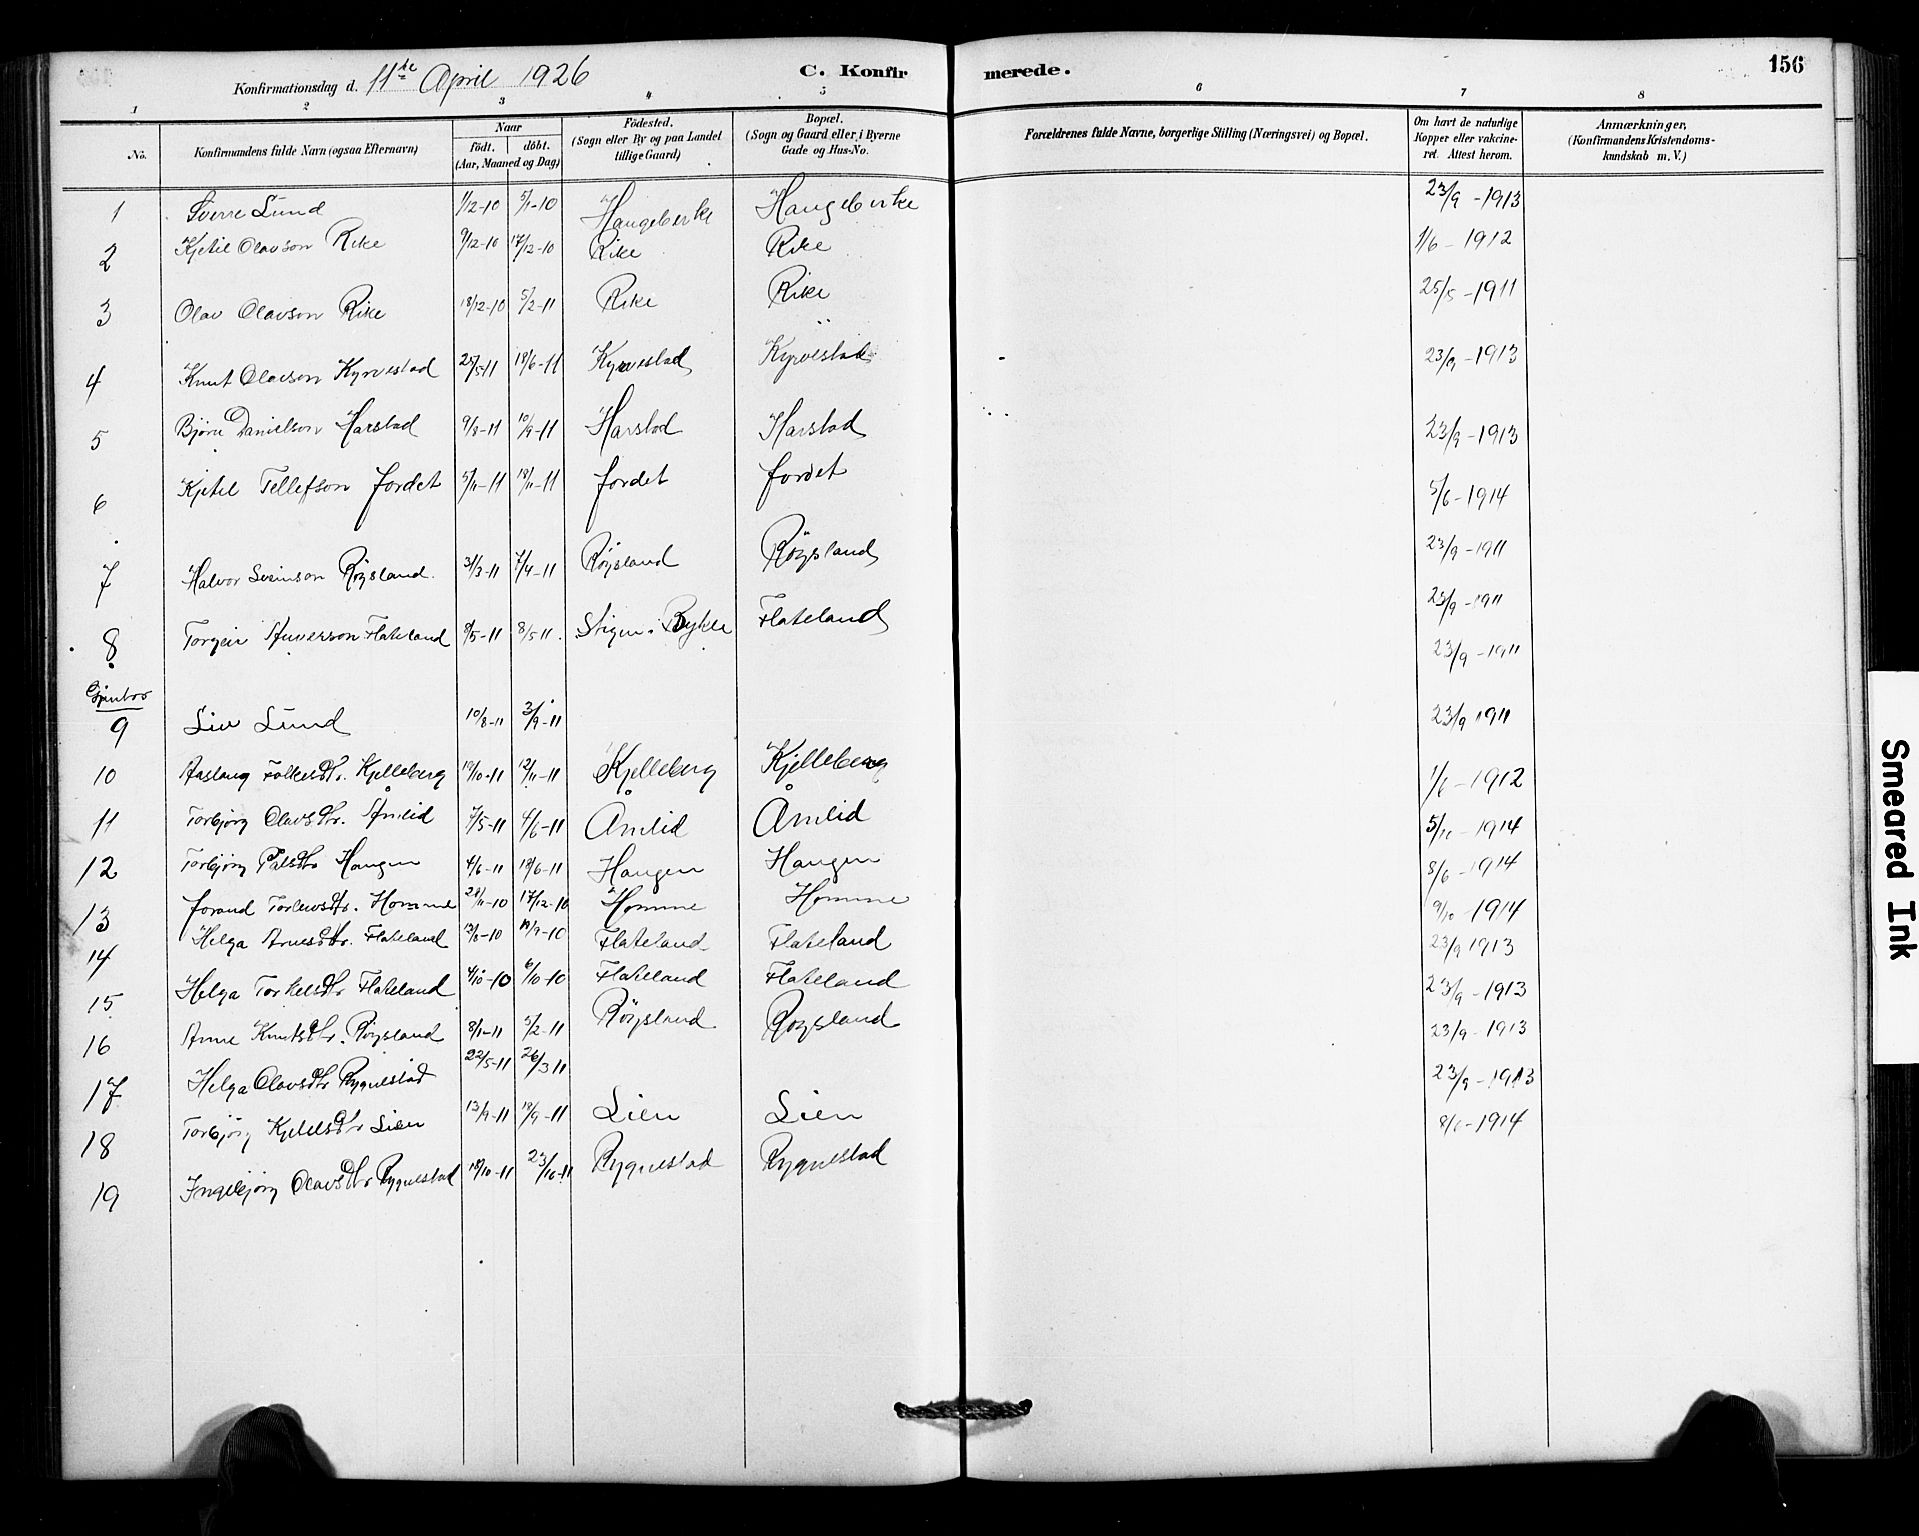 Konfirmationsdag d. 11te April 1926 C. Konfirmerede. 156
1 2 3 4 5 6 7 8
No. Konfirmandens fulde Navn (ogsaa Efternavn) Naar födt. döbt. (Aar, Maaned og Dag) Födested. (Sogn eller By og paa Landet tillige Gaard) Bopæl. (Sogn og Gaard eller i Byerne Gade og Hus-No. Forældrenes fulde Navne, borgerlige Stilling (Næringsvei) og Bopæl. Om havt de naturlige Kopper eller vakcineret. Attest herom. Anmærkninger, (Konfirmandens Kristendomskundskab m. V.)
1 Sverre Lund 1/12-10 5/1-10 Haugebirke Haugebirke 23/9-1913
2 Kjetil Olavson Rike 9/12-10 17/12-10 Rike Rike 1/6-1912
3 Olav Olavson Rike 18/12-10 5/2-11 Rike Rike 25/5-1911
4 Knut Olavson Kyrvestad 25/5-11 18/6-11 Kyrvestad Kyrvestad 23/9-1913
5 Bjørn Danielson Harstad 9/8-11 10/9-11 Harstad Harstad 23/9-1913
6 Kjetil Tellefson Jordet 5/11-11 19/11-11 Jordet Jordet 5/6-1914
7 Halvor Sveinson Røysland. 31/3-11 7/4-11 Røysland Röysland 23/9-1911
8 Torgeir Flateland 8/5-11 8/5 11. Stigen. Bykle Flateland 23/9-1911
23/9-1911
Gjentor
9 Liv Lund 10/8-11 3/9-11 23/9 1911
10 Aaslaug Folkesdtr. Kjelleberg 19/10-11 12/11-11 Kjelleberg Kjelleberg 1/6-1912
11 Torbjørg Olavsdtr. Åmlid 7/5-11 4/6-11 Åmlid Åmlid 5/10-1914
12 Torbjørg Pålsdtr Haugen 4/6-11 18/6-11 Haugen Haugen 8/6-1914
13 Jorand Torleivsdtr. Homme 28/11-10 17/12-10 Homme Homme 9/10-1914
14 Helga Arnesdtr. Flateland 13/8-10 19/9-10 Flateland Flateland 23/9 1913
15 Helga Torkelsdtr Flateland 4/10-10 6/10-10 Flateland Flateland 23/9-1913
16 Anne Knutsdtr. Røysland 8/1-11 5/2-11 Röysland Røysland 23/9-1913
17 Helga Olavsdtr Rygnestad 22/5-11 26/3 11 23/9-1913
18 Torbjörg Kjetilsdtr Lien 13/9-11 19/9-11 Lien Lien 8/6-1914
19 Ingebjørg Olavsdtr Rygnestad 18/10-11 23/10-11 Rygnestad Rygnestad
Smeared Ink